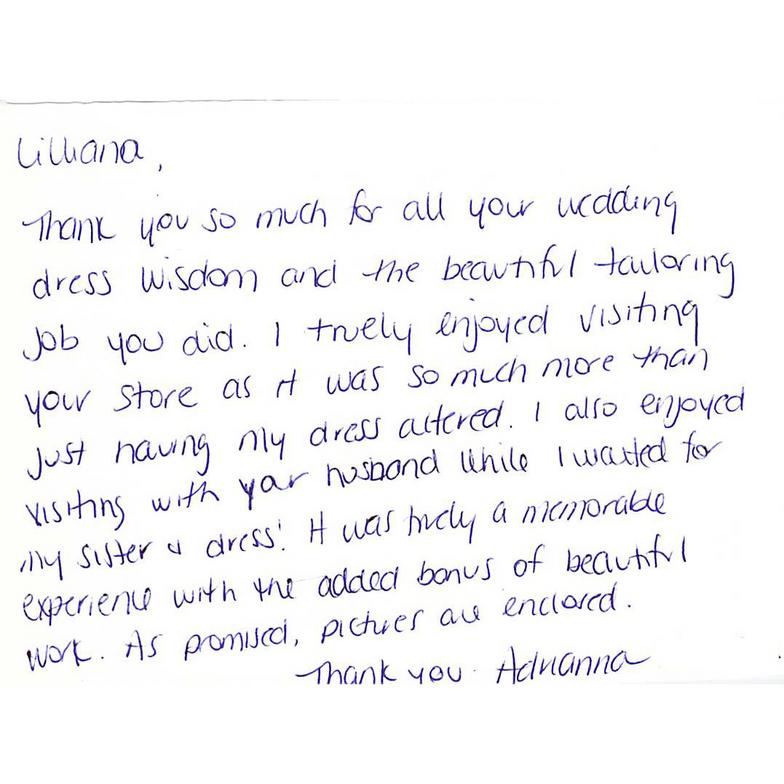 Lilliana,
Thank you so much for all your wedding
dress wisdom and the beautiful tailoring
job you did. I truely enjoyed visiting
your store as it was so much more than
just having my dress altered. I also enjoyed
visiting with your husband while I waited for
my sister & dress! It was truely a memorable
experience with the added bonus of beautiful
work. As promised, pictures are enclosed.
Thank you. Adrianna